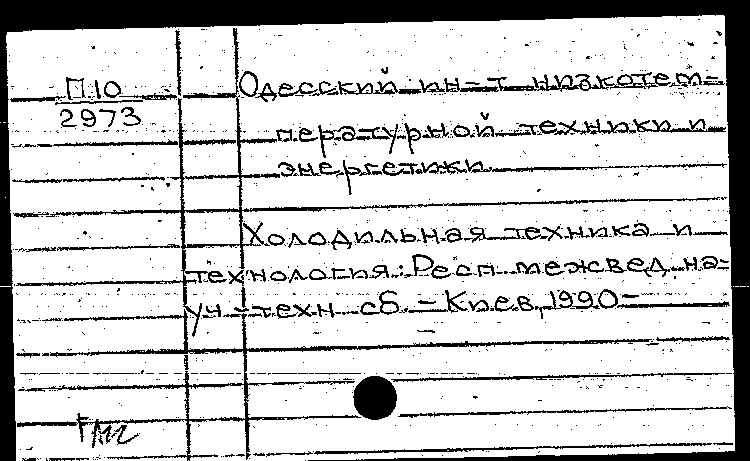 П10
2973
Одесский ин-т низкотем-
пературной техники и
энергетики.
Холодильная техника и
технология: Респ. межвед. на-
уч.-техн. сб. - Киев, 1990-